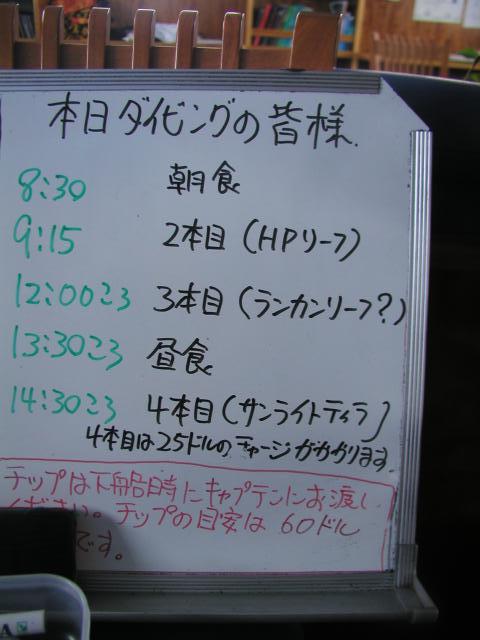 本日ダイビングの皆様
8:30 朝食
9:15 2本目(HPリーフ)
12:00ころ 3本目(ランカンリーフ?)
13:30ころ 昼食
14:30ころ 4本目(サンライトティラ)
4本目は25ドルのチャージがかかります。
チップは下船時にキャプテンにお渡し
ください。チップの目安は 60ドル
です。